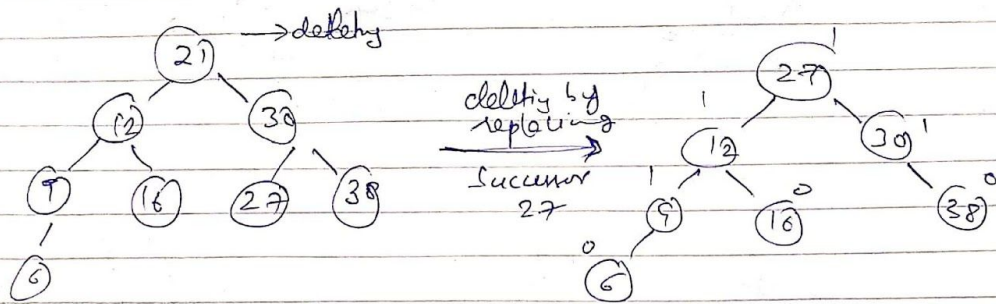 21 → deleting
12 30
9 16 27 38
6
deleting by
replacing
Successor
27
27 1
1 12 30 1
1 9 16 0 38 0
0 6